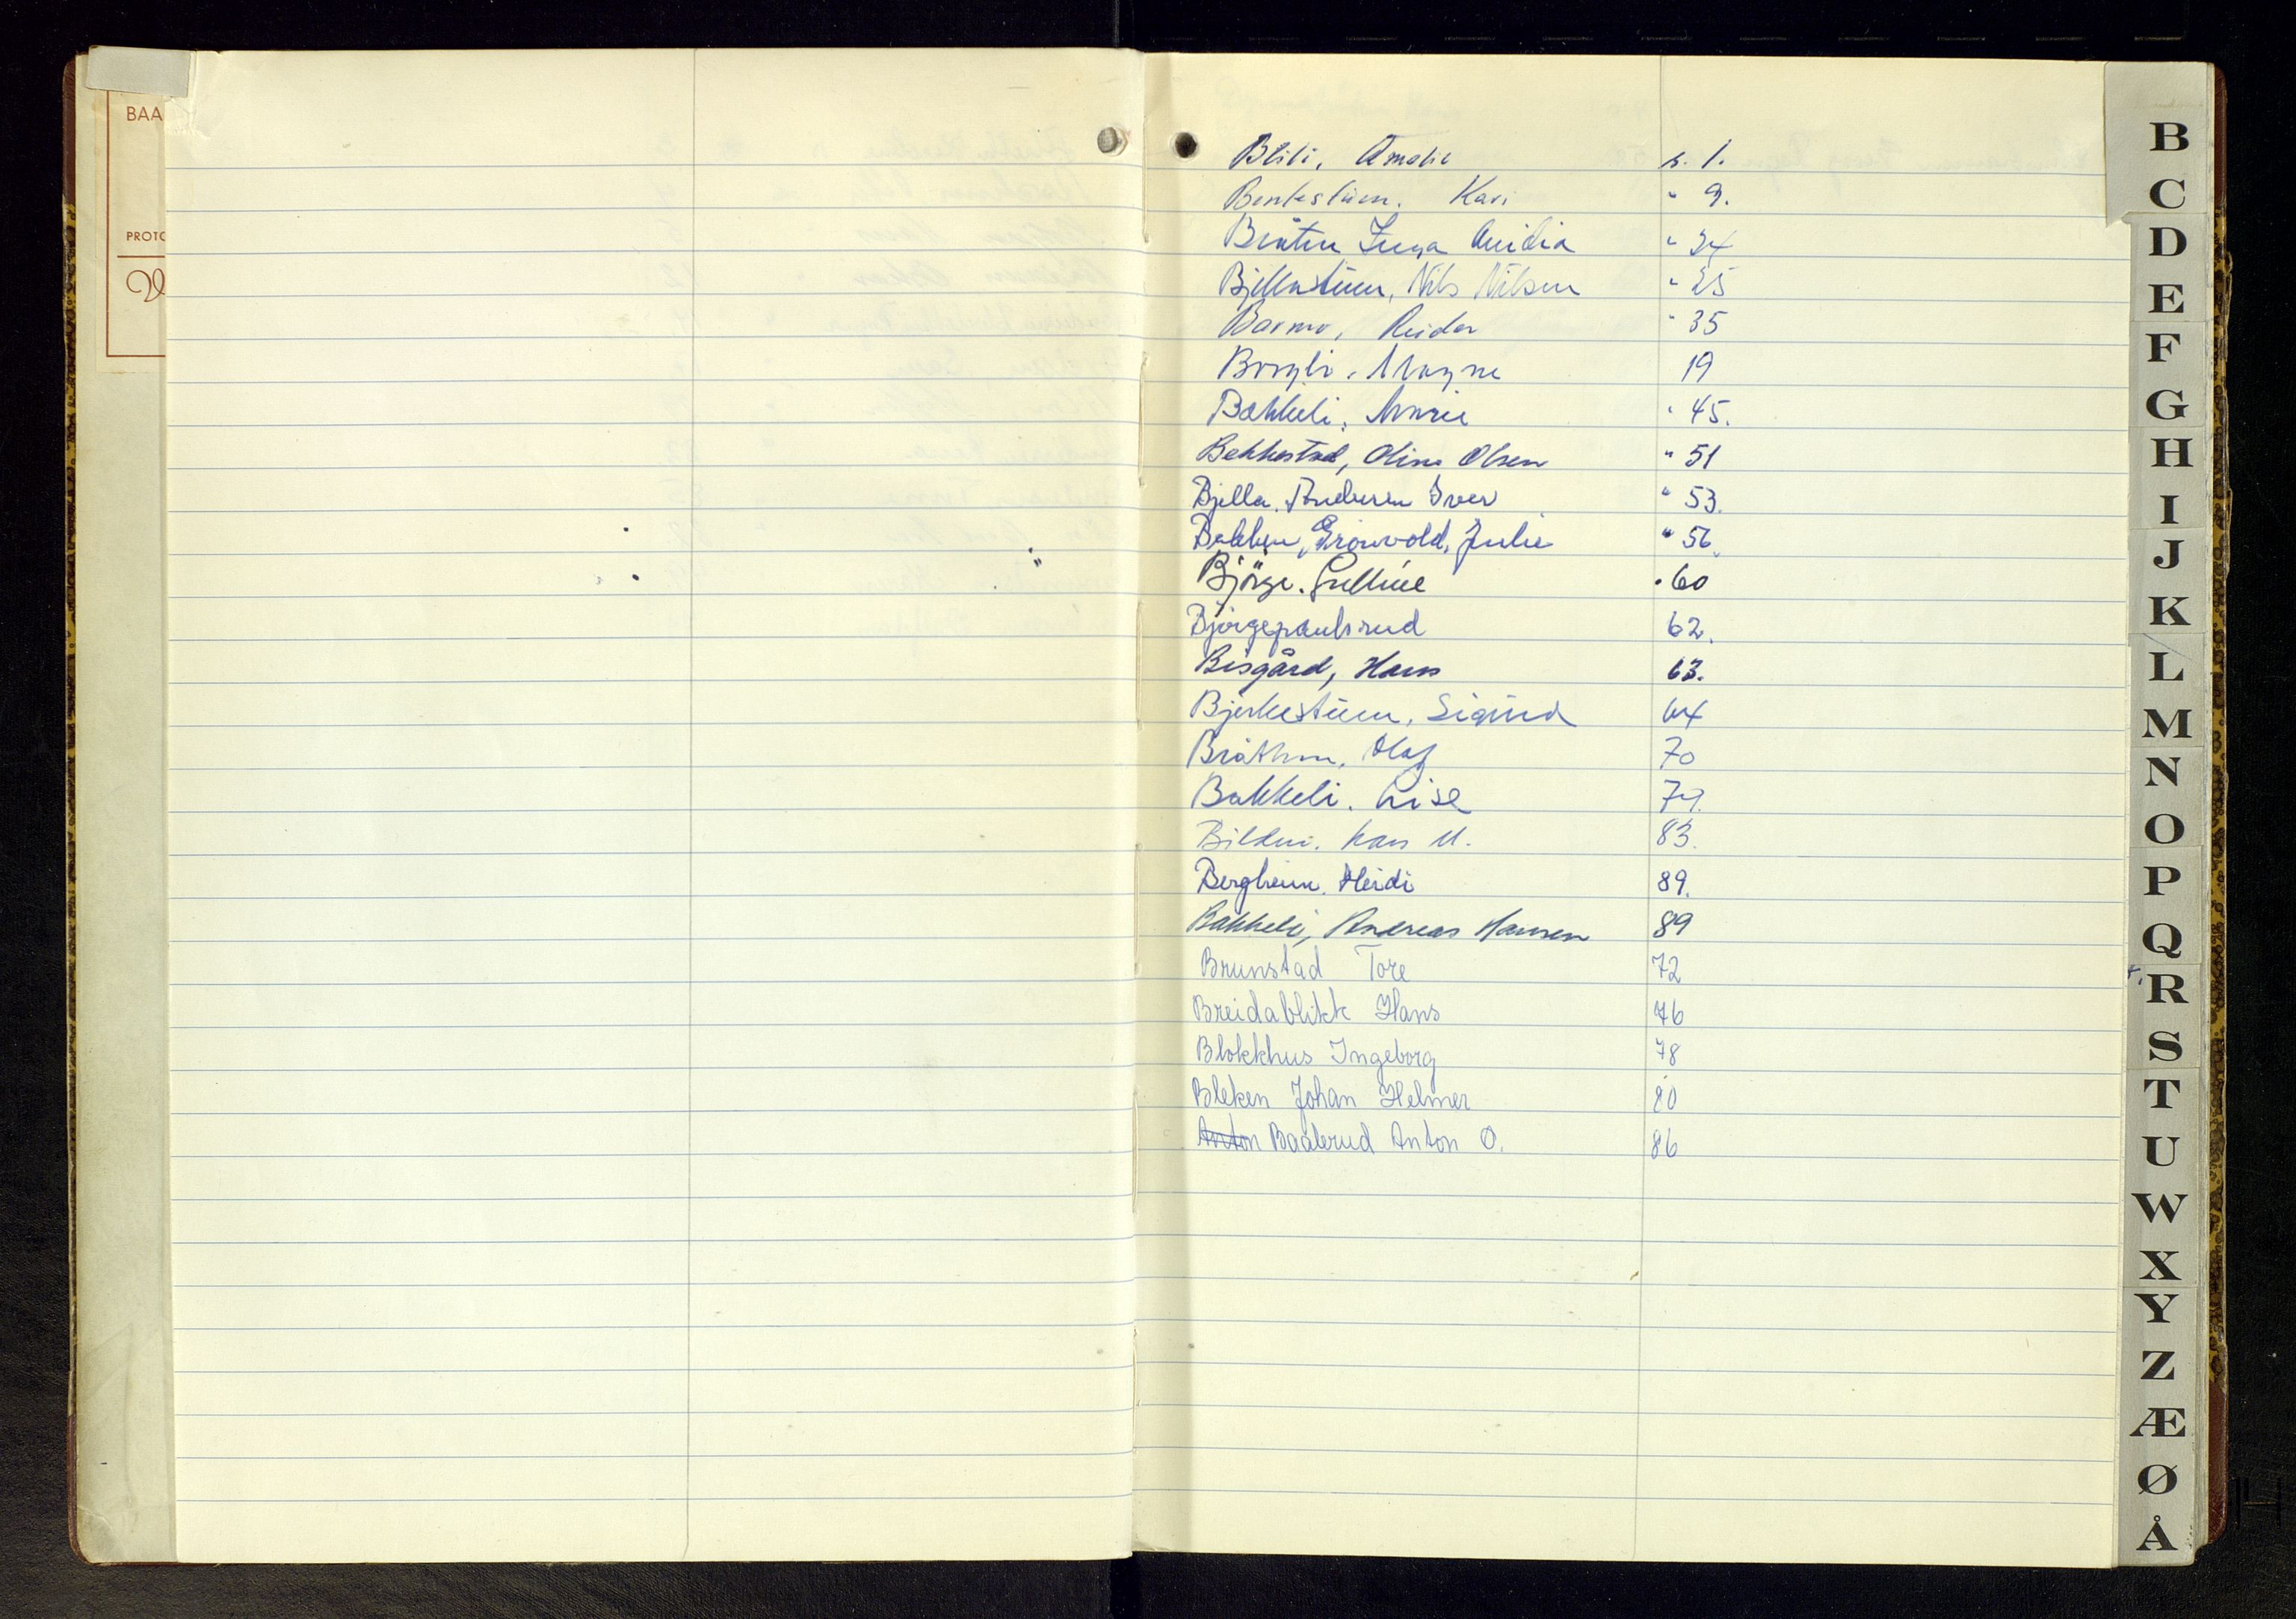 BAA
PROTO
Blili, Amalie s. 1.
Bentestuen. Kari " 9.
Bråten Inga Auidia " 34
Bjellastuen, Nils Nilsen " 25
Barmo, Reidar " 35
Borgli, Magne 19
Bakkeli, Marie " 45.
Bekkestad, Oline Olsen " 51
Bjella, Andersen Iver " 53.
Bakken, Grönvold, Julie " 56
Björge. Gulline " 60
Björgepaulsrud 62.
Bisgård, Hans 63.
Bjerkestuen, Sigrid 64
Bråthen, Olaf 70
Bakkeli. Lise 79.
Bilden. Kari M. 83.
Bergheim. Heidi 89.
Bakkeli, Andreas Hansen 89
Brunstad Tore 72
Breidablikk Hans 76
Blokkhus Ingeborg 78
Bleken Johan Helmer 80
Anton Baalerud Anton O. 86
B
C
D
E
F
G
H
I
J
K
L
M
N
O
P
Q
R
S
T
U
W
X
Y
Z
Æ
Ø
Å